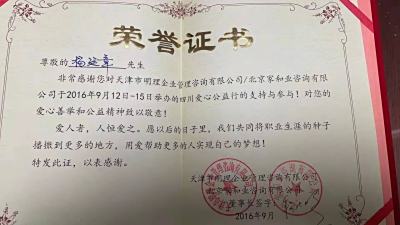 荣誉证书
尊敬的 杨廷章 先生
非常感谢您对天津市明理企业管理咨询有限公司/北京家和业咨询有限
公司于2016年9月12日~15日举办的四川爱心公益行的支持与参与！对您的
爱心善举和公益精神致以敬意！
爱人者，人恒爱之。愿以后的日子里，我们共同将职业生涯的种子
播撒到更多的地方，用爱帮助更多的人实现自己的梦想！
特发此证，以表感谢。
天津市明理企业管理咨询有限公司
北京家和业咨询有限公司
董事长签字：
2016年9月